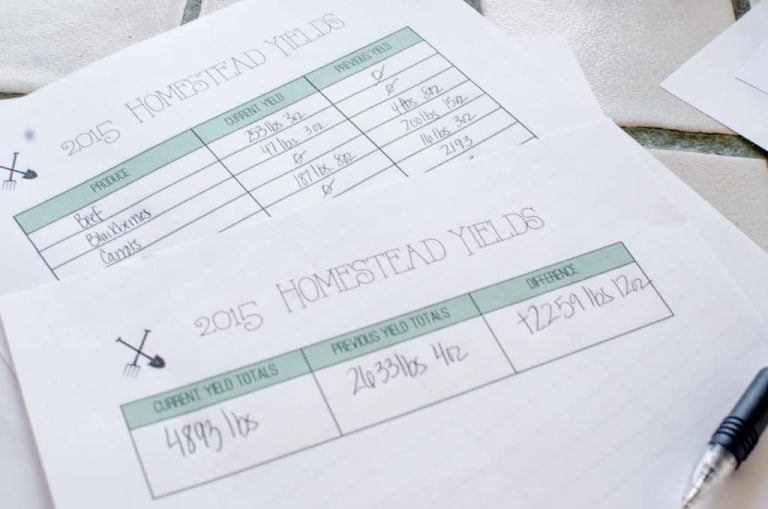 2015 HOMESTEAD YIELDS
PRODUCE CURRENT YIELD PREVIOUS YIELD
Beef 253 lbs 3oz Ø
Blackberries 47 lbs 3oz Ø
Carrots Ø 4 lbs 8oz
187 lbs 8oz 200 lbs 15oz
Ø 16 lbs 3oz
2193
2015 HOMESTEAD YIELDS
CURRENT YIELD TOTALS PREVIOUS YIELD TOTALS DIFFERENCE
4893 lbs 2633 lbs 4oz +2259 lbs 12oz